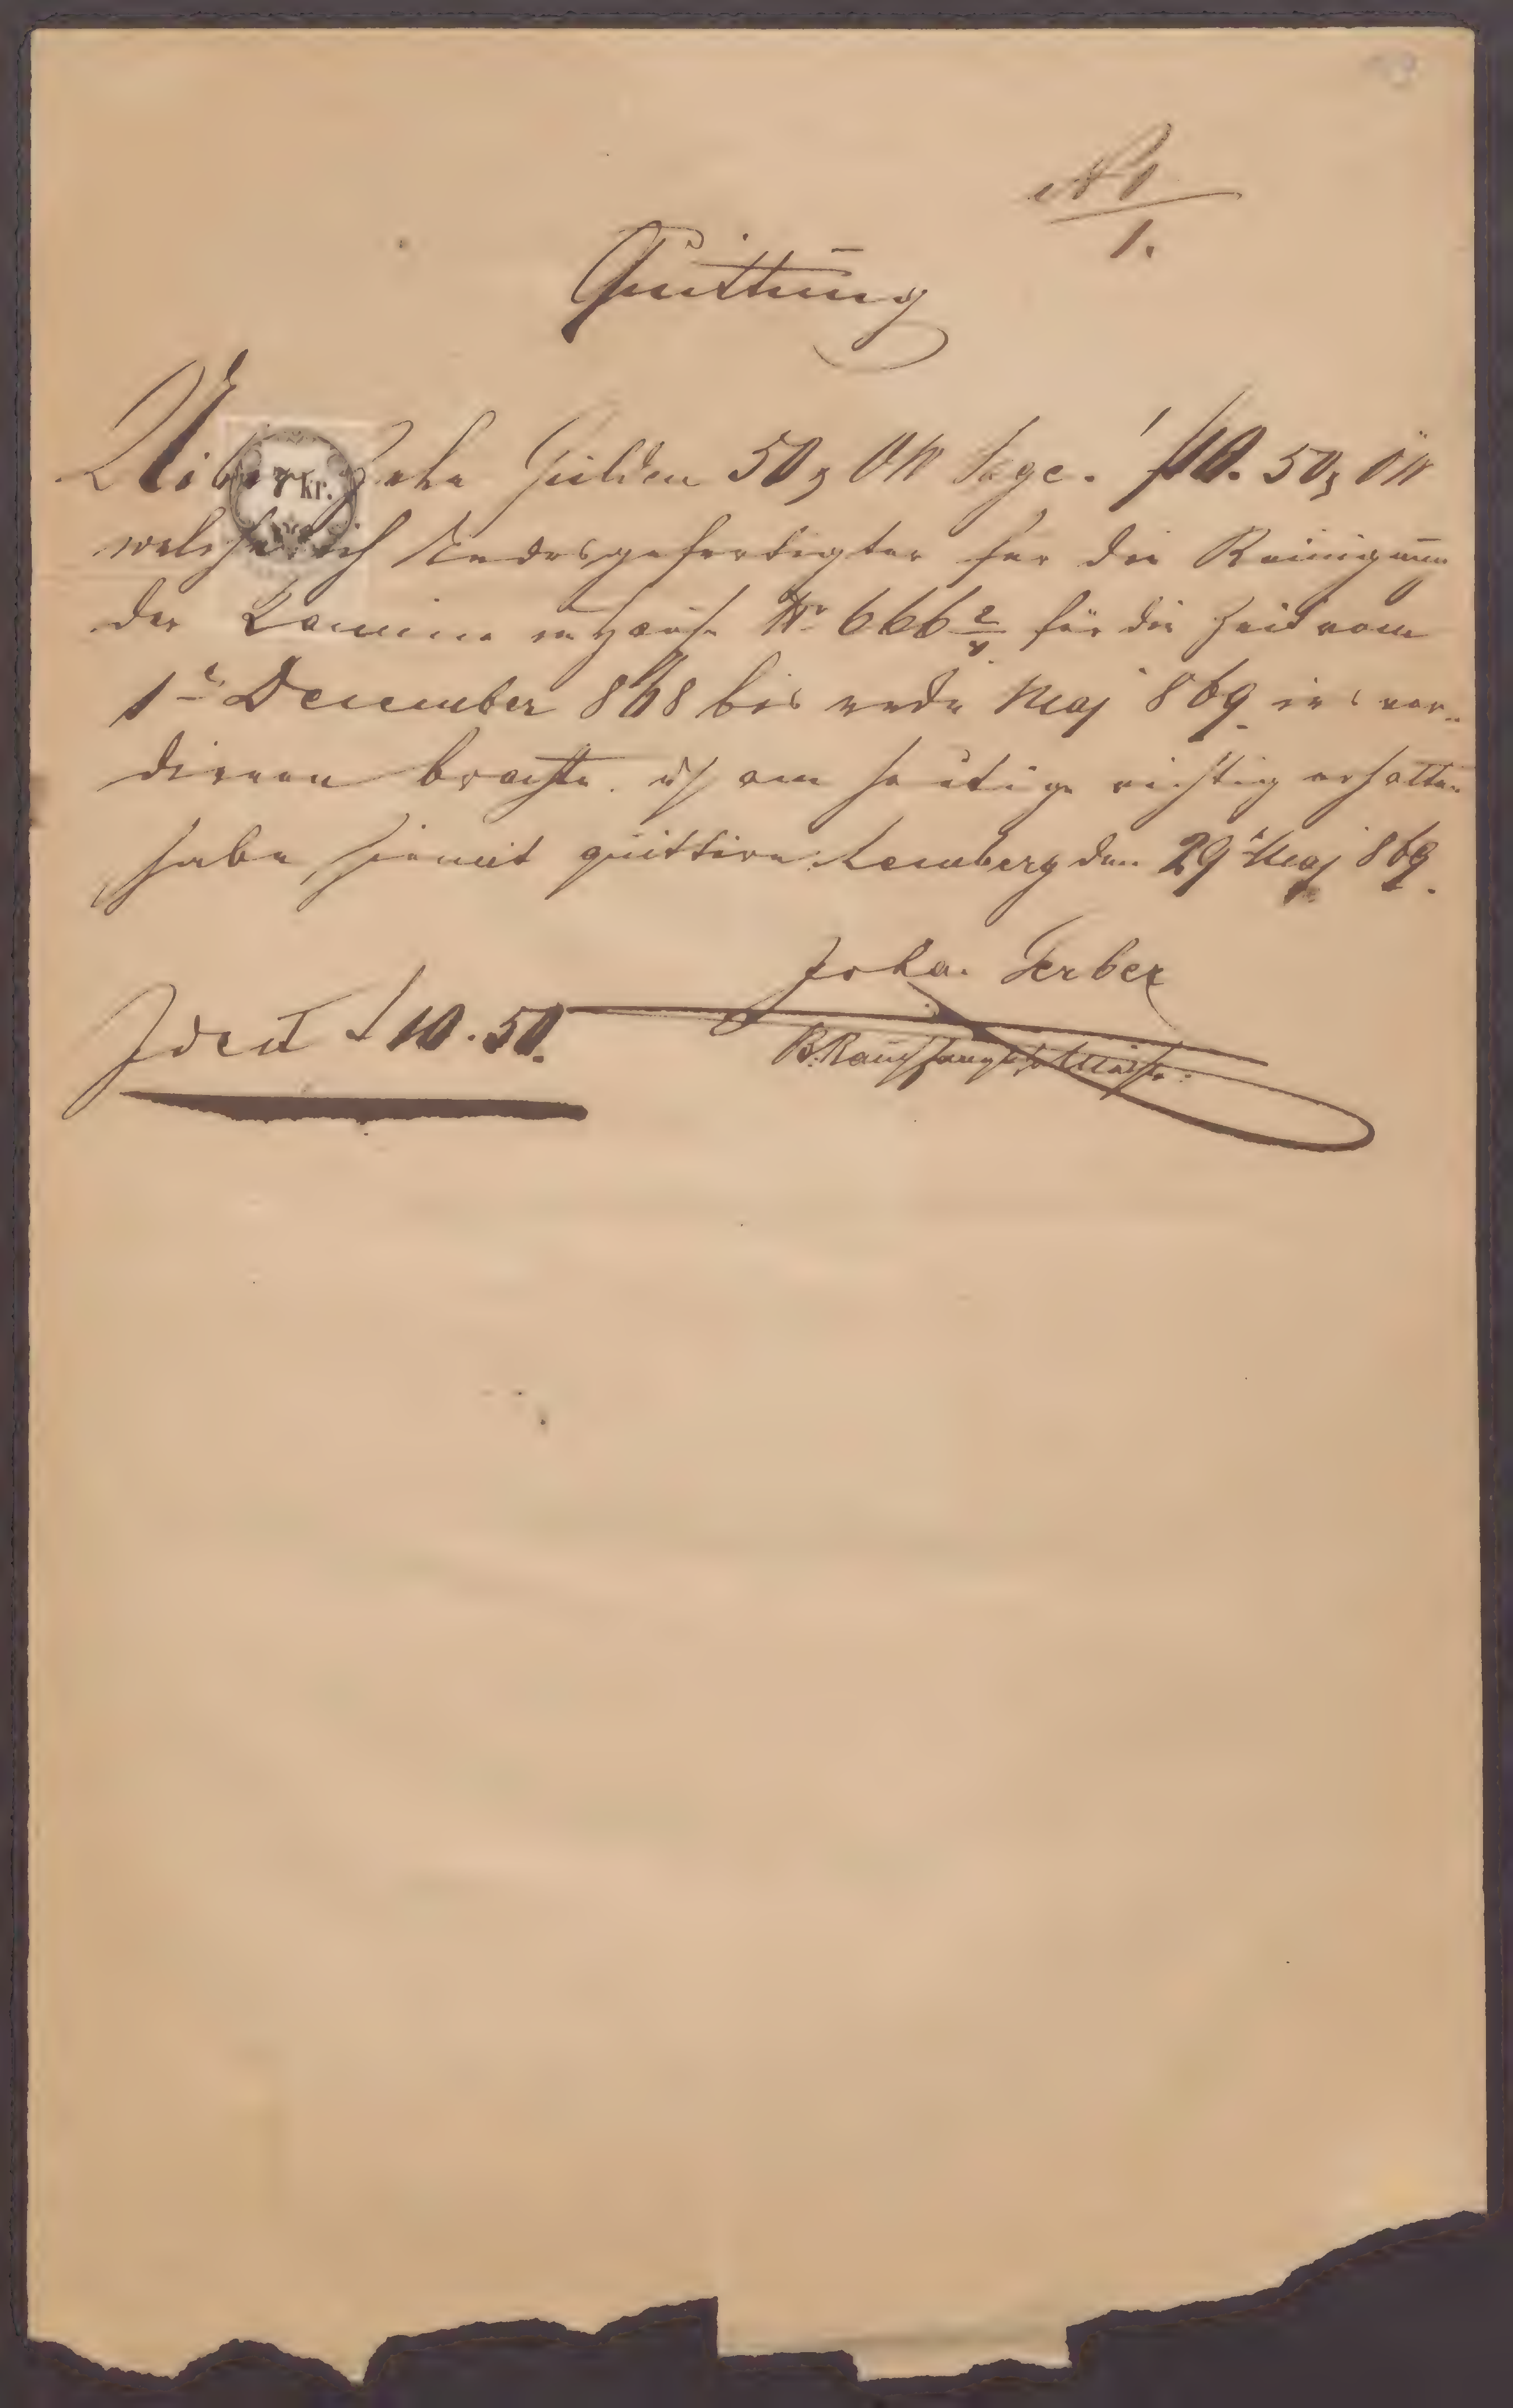 N 1
1.
Quittung
Uiber Zehn Gulden 50 x ÖW Sage. f 10. 50 x ÖW
7 kr.
welche ich Endesgefertigter fur die Reinigung
der Kamine im Hause Nr 666 2/4 für die Zeit vom
1t December 868 bis ende Maj 869 ins ver-
dienen brachte. ich am heutige richtig erhalten
habe, hiemit quittire. Lemberg den 29t Maj 869.
Joha. Gerber
Ident f 10. 50.
B. Rauchfangk. Meister